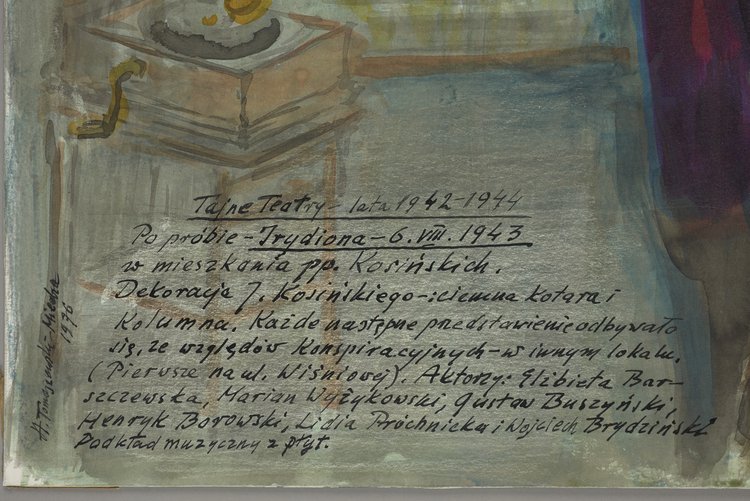 Tajne Teatry - lata 1942-1944
Po próbie - Irydiona - 6.VIII.1943
w mieszkaniu pp. Kosińskich.
Dekoracje J. Kosińskiego -: ciemna kotara i
Kolumna. Każde następne przedstawienie odbywało
się, ze względów Konspiracyjnych - w innym lokalu.
(Pierwsze na ul. Wiśniowej). Aktorzy: Elżbieta Bar-
szczewska, Marian Wyżykowski, Gustaw Buszyński,
Henryk Borowski, Lidia Próchnicka i Wojciech Brydziński
Podkład muzyczny z płyt.
H. Tomaszewski-Miedza
1976